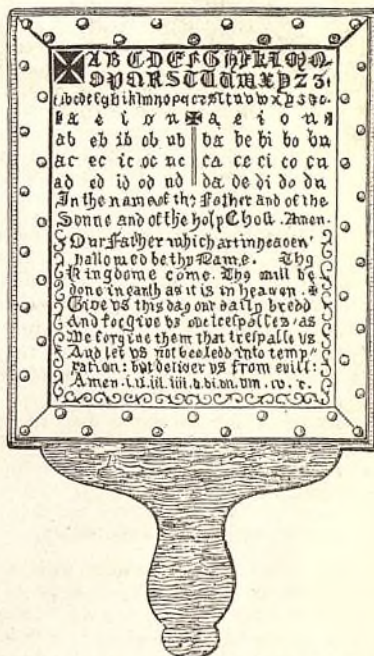 ✠ A B C D E F G H I K L M N
O P Q R S T U U W X Y Z 3.
a b c d e f g h i k l m n o p q r z s ſ t u v w x y z &
a e i o u ✠ a e i o u
ab eb ib ob ub ba be bi bo bu
ac ec ic oc uc ca ce ci co cu
ad ed id od ud da de di do du
In the name of the Father and of the
Sonne and of the holy Ghost. Amen.
Our Father which art in heaven
hallowed be thy Name. Thy
Kingdome come. Thy will be
done in earth as it is in heaven.
Give us this day our daily bredd
And forgive vs our trespasses as
We forgive them that trespasse vs
And let vs not be ledd into temp-
tation: bot deliver vs from evill:
Amen. i. ii. iii. iiii. v. vi. vii. viii. ix. x.